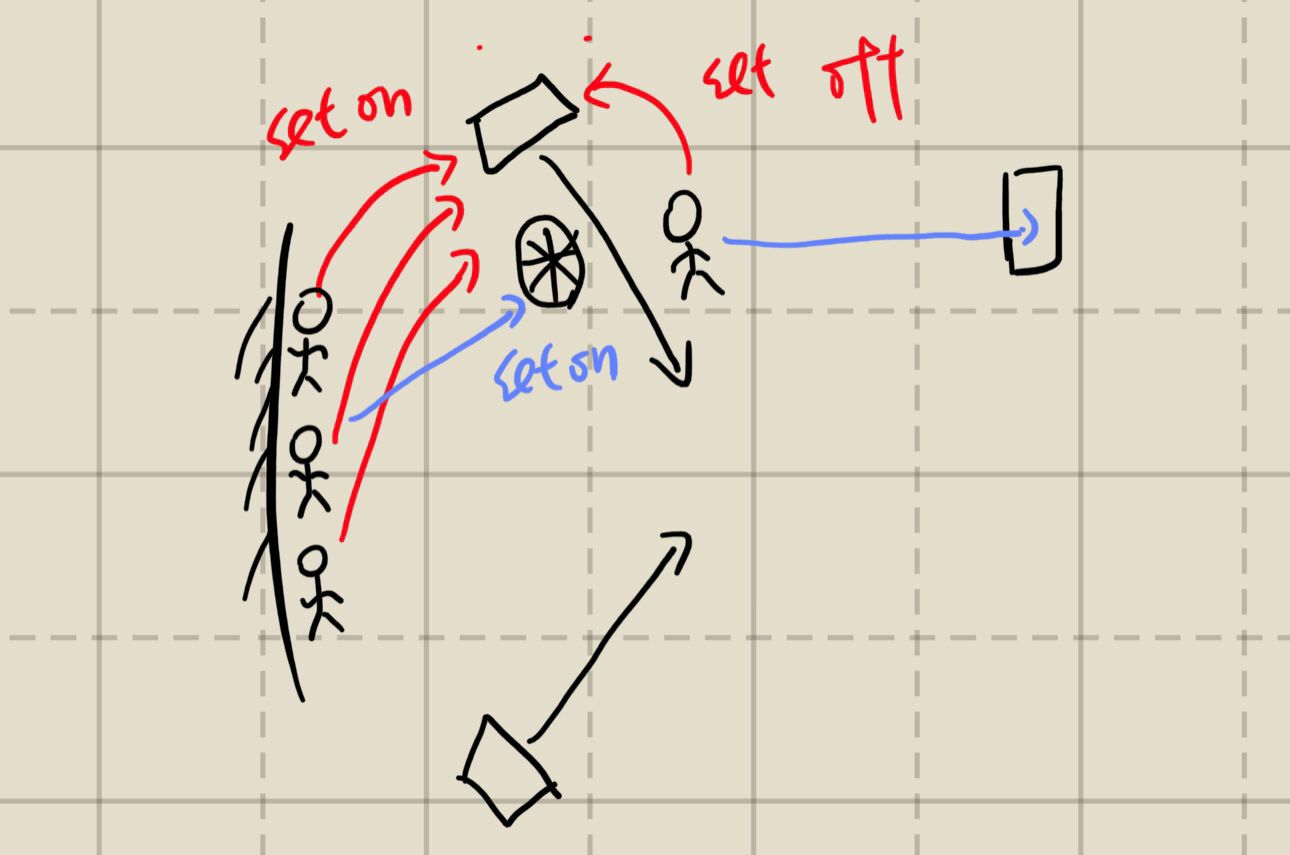 set on
set off
set on